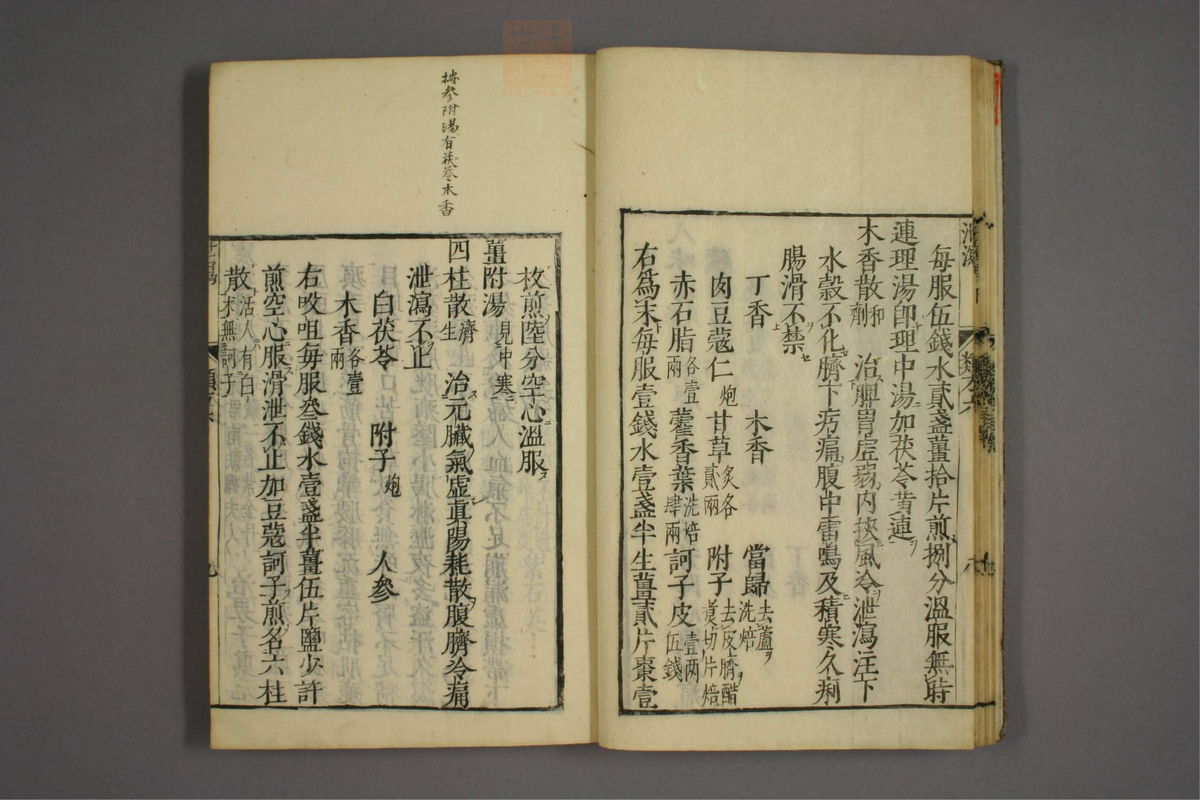 每服伍錢水貳盞薑拾片煎捌分溫服無時
連理湯即理中湯加茯苓黃連
木香散和劑 治脾胃虛弱內挾風冷泄瀉注下
水穀不化臍下㽲痛腹中雷鳴及積寒久痢
腸滑不禁
丁香 木香 當歸去蘆洗焙
肉豆蔻仁炮 甘草炙各貳兩 附子去皮臍醋煑切片焙
赤石脂各壹兩 藿香葉洗焙肆兩 訶子皮壹兩伍錢
右爲末每服壹錢水壹盞半生薑貳片棗壹
按參附湯有茯苓木香
枚煎陸分空心溫服
薑附湯見中寒
四柱散濟生 治元臟氣虛眞陽耗散腹臍冷痛
泄瀉不止
白茯苓 附子炮 人參
木香各壹兩
右㕮咀每服叄錢水壹盞半薑伍片鹽少許
煎空心服滑泄不止加豆蔻訶子煎名六柱
散活人有白朮無訶子